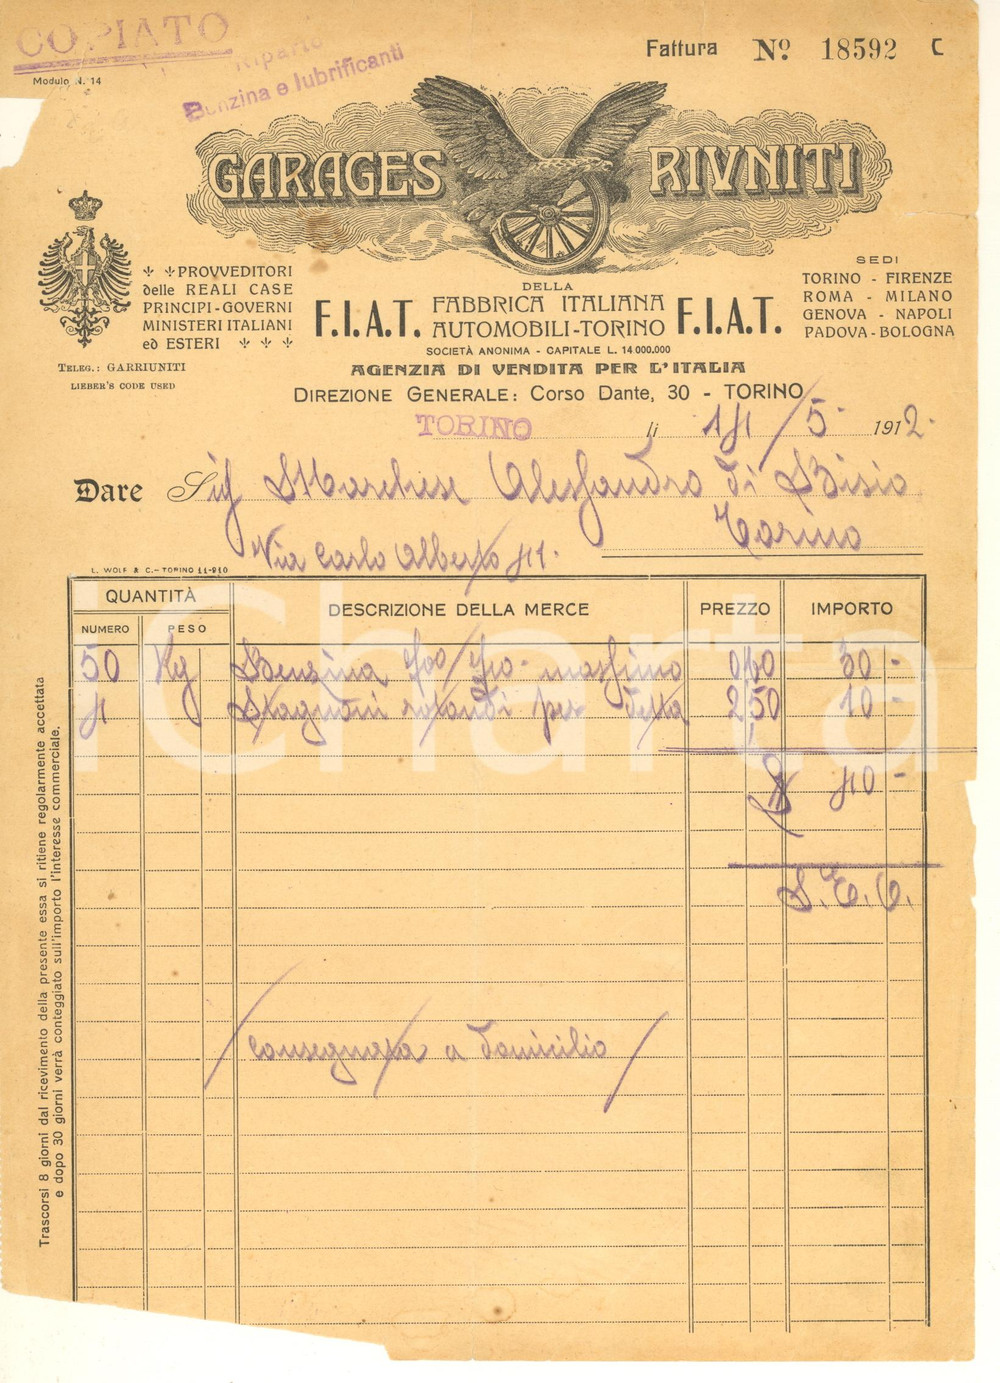 COPIATO
Riparto
Benzina e lubrificanti
Modulo N. 14
Fattura Nº 18592 C
GARAGES RIVNITI
PROVVEDITORI
delle REALI CASE
PRINCIPI-GOVERNI
MINISTERI ITALIANI
ed ESTERI
TELEG.: GARRIUNITI
LIEBER'S CODE USED
F.I.A.T.
DELLA
FABBRICA ITALIANA
AUTOMOBILI-TORINO
F.I.A.T.
SOCIETÀ ANONIMA - CAPITALE L. 14.000.000
AGENZIA DI VENDITA PER L'ITALIA
DIREZIONE GENERALE: Corso Dante, 30 - TORINO
SEDI
TORINO - FIRENZE
ROMA - MILANO
GENOVA - NAPOLI
PADOVA - BOLOGNA
TORINO li 14/5 1912.
Dare Sig Marchese Alessandro di Bisio
Torino
Via Carlo Alberto 41.
L. WOLF & C.- TORINO 11-910
QUANTITÀ
NUMERO PESO
DESCRIZIONE DELLA MERCE
PREZZO
IMPORTO
50 Kg Benzina 700/710 massimo 0,60 30 -
4 Stagnoni rotondi per detta 2,50 10 -
40 -
S. E. O.
consegnata a domicilio
Trascorsi 8 giorni dal ricevimento della presente essa si ritiene regolarmente accettata
e dopo 30 giorni verrà conteggiato sull'importo l'interesse commerciale.
iCharta